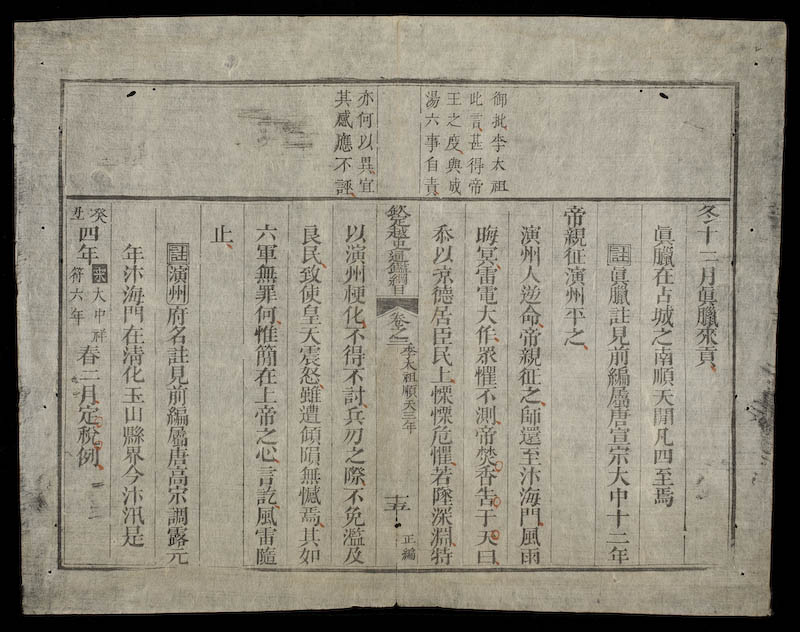 御批李太祖
此言甚得帝
王之度與成
湯六事自責
亦何以異宜
其感應不誣
冬十二月眞臘來貢
眞臘在占城之南順天開凡四至焉
註眞臘註見前編屬唐宣宗大中十二年
帝親征演州平之
演州人逆命帝親征之師還至汴海門風雨
晦冥雷電大作眾懼不測帝焚香告于天曰
忝以凉德居臣民上慄慄危懼若墜深淵特
欽定越史通鑑綱目 卷之二 李太祖順天三年 十五 正編
以演州梗化不得不討兵刃之際不免濫及
良民致使皇天震怒雖遭傾隕無憾焉其如
六軍無罪何惟簡在上帝之心言訖風雷隨
止
註演州府名註見前編屬唐高宗調露元
年汴海門在淸化玉山縣界今汴汛是
癸丑四年宋大中祥符六年春二月定稅例